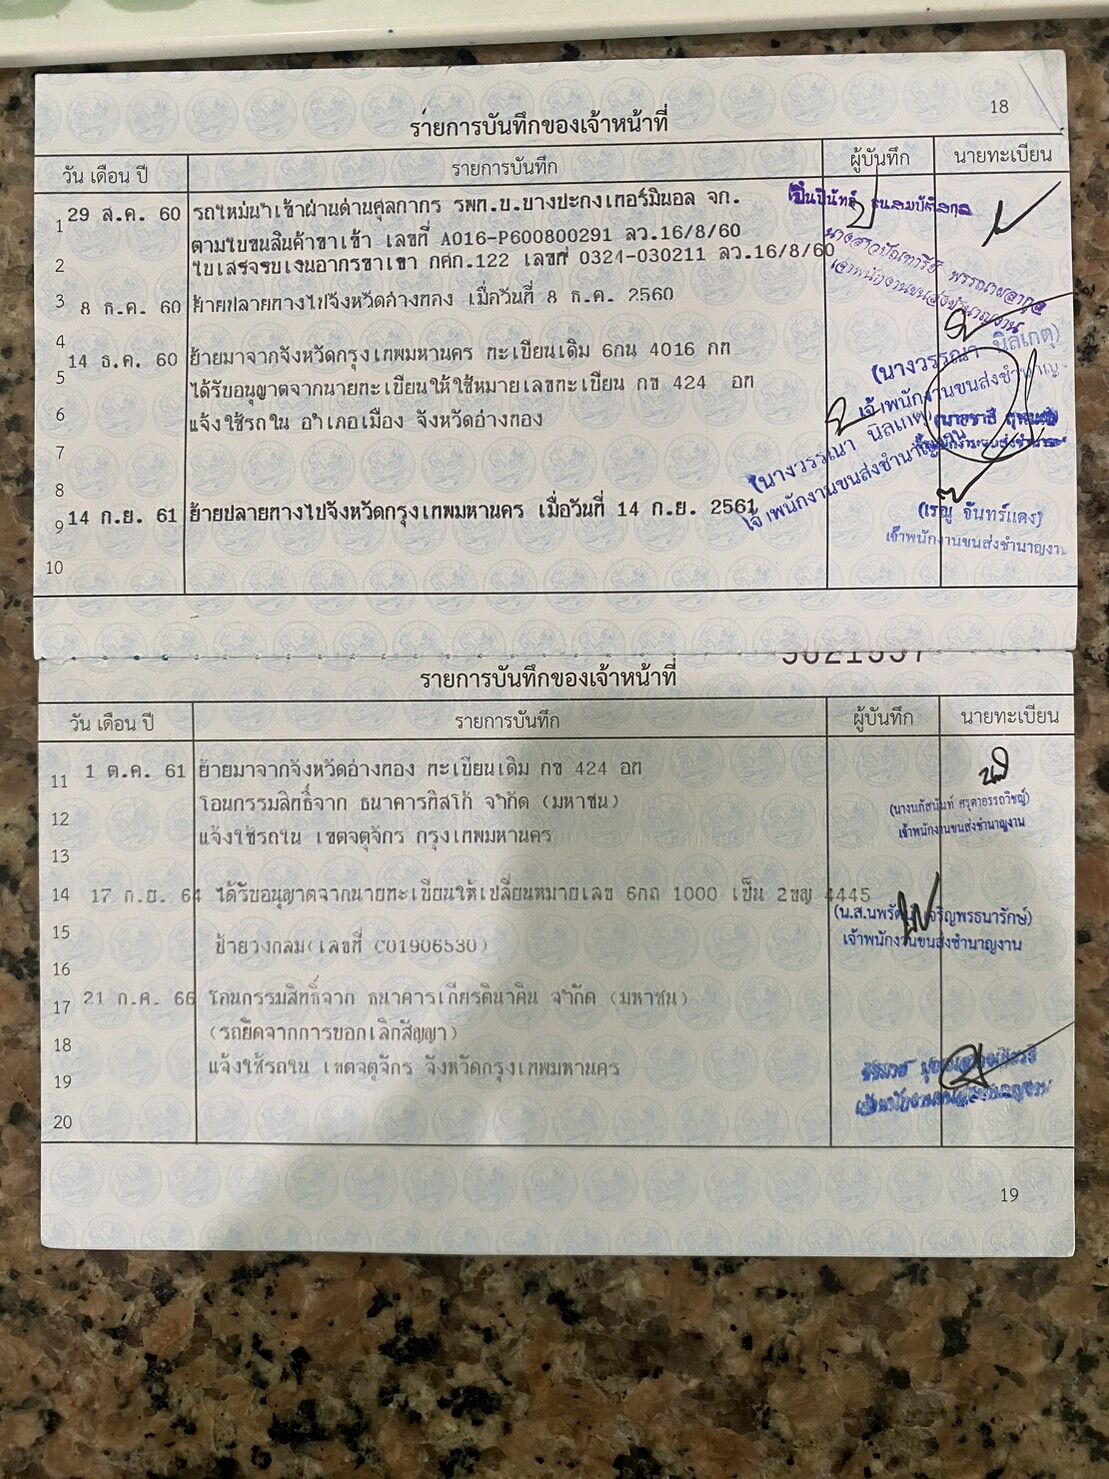 18
รายการบันทึกของเจ้าหน้าที่
วัน เดือน ปี รายการบันทึก ผู้บันทึก นายทะเบียน
1 29 ส.ค. 60 รถใหม่นำเข้าผ่านด่านศุลกากร รพท.บ.บางปะกงเทอร์มินอล จก.
ตามใบขนสินค้าขาเข้า เลขที่ A016-P600800291 ลว.16/8/60
2 ใบเสร็จรับเงินอากรขาเข้า กศก.122 เลขที่ 0324-030211 ลว.16/8/60
เจ้าพนักงานขนส่งชำนาญงาน
3 8 ธ.ค. 60 ย้ายปลายทางไปจังหวัดอ่างทอง เมื่อวันที่ 8 ธ.ค. 2560
4
(นางวรรณา นิลเกตุ)
เจ้าพนักงานขนส่งชำนาญ
14 ธ.ค. 60 ย้ายมาจากจังหวัดกรุงเทพมหานคร ทะเบียนเดิม 6กน 4016 กท
5 ได้รับอนุญาตจากนายทะเบียนให้ใช้หมายเลขทะเบียน กข 424 อท
6 แจ้งใช้รถใน อำเภอเมือง จังหวัดอ่างทอง
7
(นางวรรณา นิลเกตุ)
เจ้าพนักงานขนส่งชำนาญงาน
8
9 14 ก.ย. 61 ย้ายปลายทางไปจังหวัดกรุงเทพมหานคร เมื่อวันที่ 14 ก.ย. 2561
(เรณู จันทร์แดง)
เจ้าพนักงานขนส่งชำนาญงาน
10
รายการบันทึกของเจ้าหน้าที่
วัน เดือน ปี รายการบันทึก ผู้บันทึก นายทะเบียน
11 1 ต.ค. 61 ย้ายมาจากจังหวัดอ่างทอง ทะเบียนเดิม กข 424 อท
12 โอนกรรมสิทธิ์จาก ธนาคารทิสโก้ จำกัด (มหาชน)
เจ้าพนักงานขนส่งชำนาญงาน
13 แจ้งใช้รถใน เขตจตุจักร กรุงเทพมหานคร
14 17 ก.ย. 64 ได้รับอนุญาตจากนายทะเบียนให้เปลี่ยนหมายเลข 6กถ 1000 เป็น 2ขญ 4445
เจ้าพนักงานขนส่งชำนาญงาน
15 ป้ายวงกลม(เลขที่ C01906530)
16
17 21 ก.ค. 66 โอนกรรมสิทธิ์จาก ธนาคารเกียรตินาคิน จำกัด (มหาชน)
18 (รถยึดจากการบอกเลิกสัญญา)
19 แจ้งใช้รถใน เขตจตุจักร จังหวัดกรุงเทพมหานคร
20
19